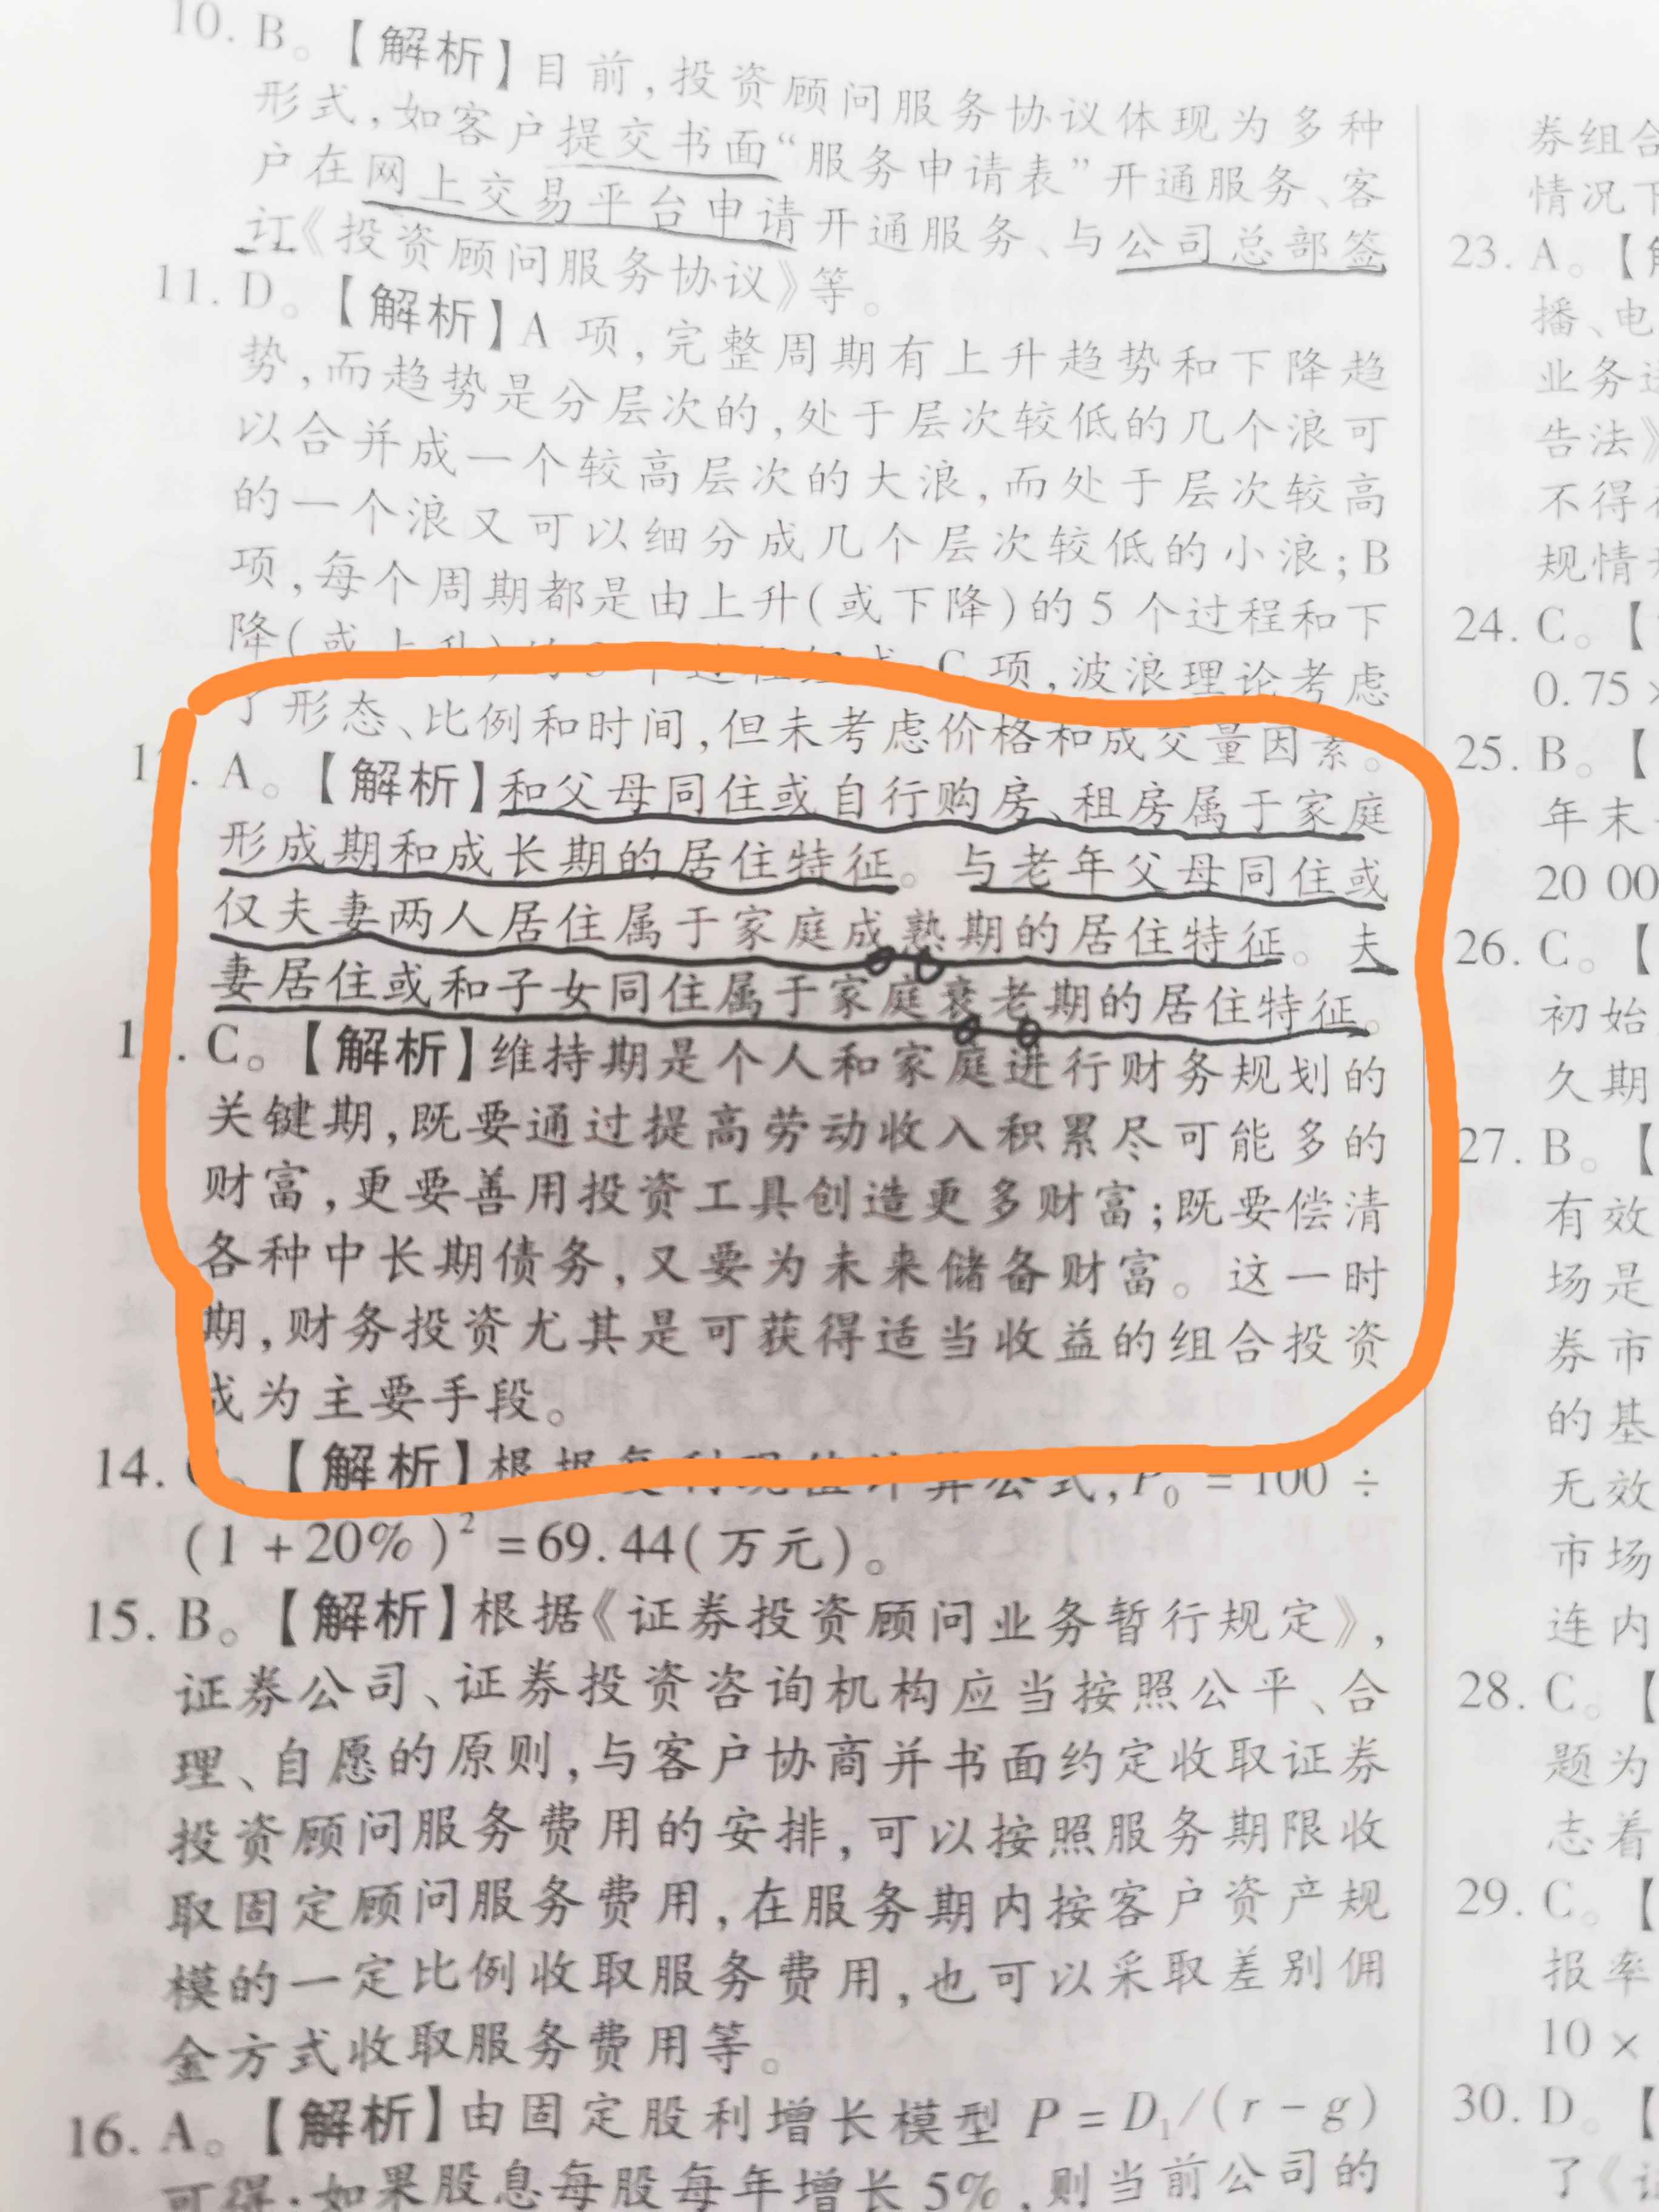 10. B。【解析】目前,投资顾问服务协议体现为多种
形式,如客户提交书面“服务申请表”开通服务、客
户在网上交易平台申请开通服务、与公司总部签
订《投资顾问服务协议》等。
11. D。【解析】A 项,完整周期有上升趋势和下降趋
势,而趋势是分层次的,处于层次较低的几个浪可
以合并成一个较高层次的大浪,而处于层次较高
的一个浪又可以细分成几个层次较低的小浪;B
项,每个周期都是由上升(或下降)的 5 个过程和下
降(或上升)的 3 个过程组成;C 项,波浪理论考虑
了形态、比例和时间,但未考虑价格和成交量因素。
1 . A。【解析】和父母同住或自行购房、租房属于家庭
形成期和成长期的居住特征。与老年父母同住或
仅夫妻两人居住属于家庭成熟期的居住特征。夫
妻居住或和子女同住属于家庭衰老期的居住特征。
1 . C。【解析】维持期是个人和家庭进行财务规划的
关键期,既要通过提高劳动收入积累尽可能多的
财富,更要善用投资工具创造更多财富;既要偿清
各种中长期债务,又要为未来储备财富。这一时
期,财务投资尤其是可获得适当收益的组合投资
成为主要手段。
14. 。【解析】根据复利现值计算公式,P₀ = 100 ÷
(1 + 20%)² = 69.44(万元)。
15. B。【解析】根据《证券投资顾问业务暂行规定》,
证券公司、证券投资咨询机构应当按照公平、合
理、自愿的原则,与客户协商并书面约定收取证券
投资顾问服务费用的安排,可以按照服务期限收
取固定顾问服务费用,在服务期内按客户资产规
模的一定比例收取服务费用,也可以采取差别佣
金方式收取服务费用等。
16. A。【解析】由固定股利增长模型 P = D₁/(r - g)
可得:如果股息每股每年增长 5%,则当前公司的
券组合
情况下
23. A。【
播、电
业务
告法》
不得
规情
24. C。【
0.75 ×
25. B。【
年末
20 00
26. C。【
初始
久期
27. B。【
有效
场是
券市
的基
无效
市场
连内
28. C。【
题为
志着
29. C。【
报率
10 ×
30. D。【
了《